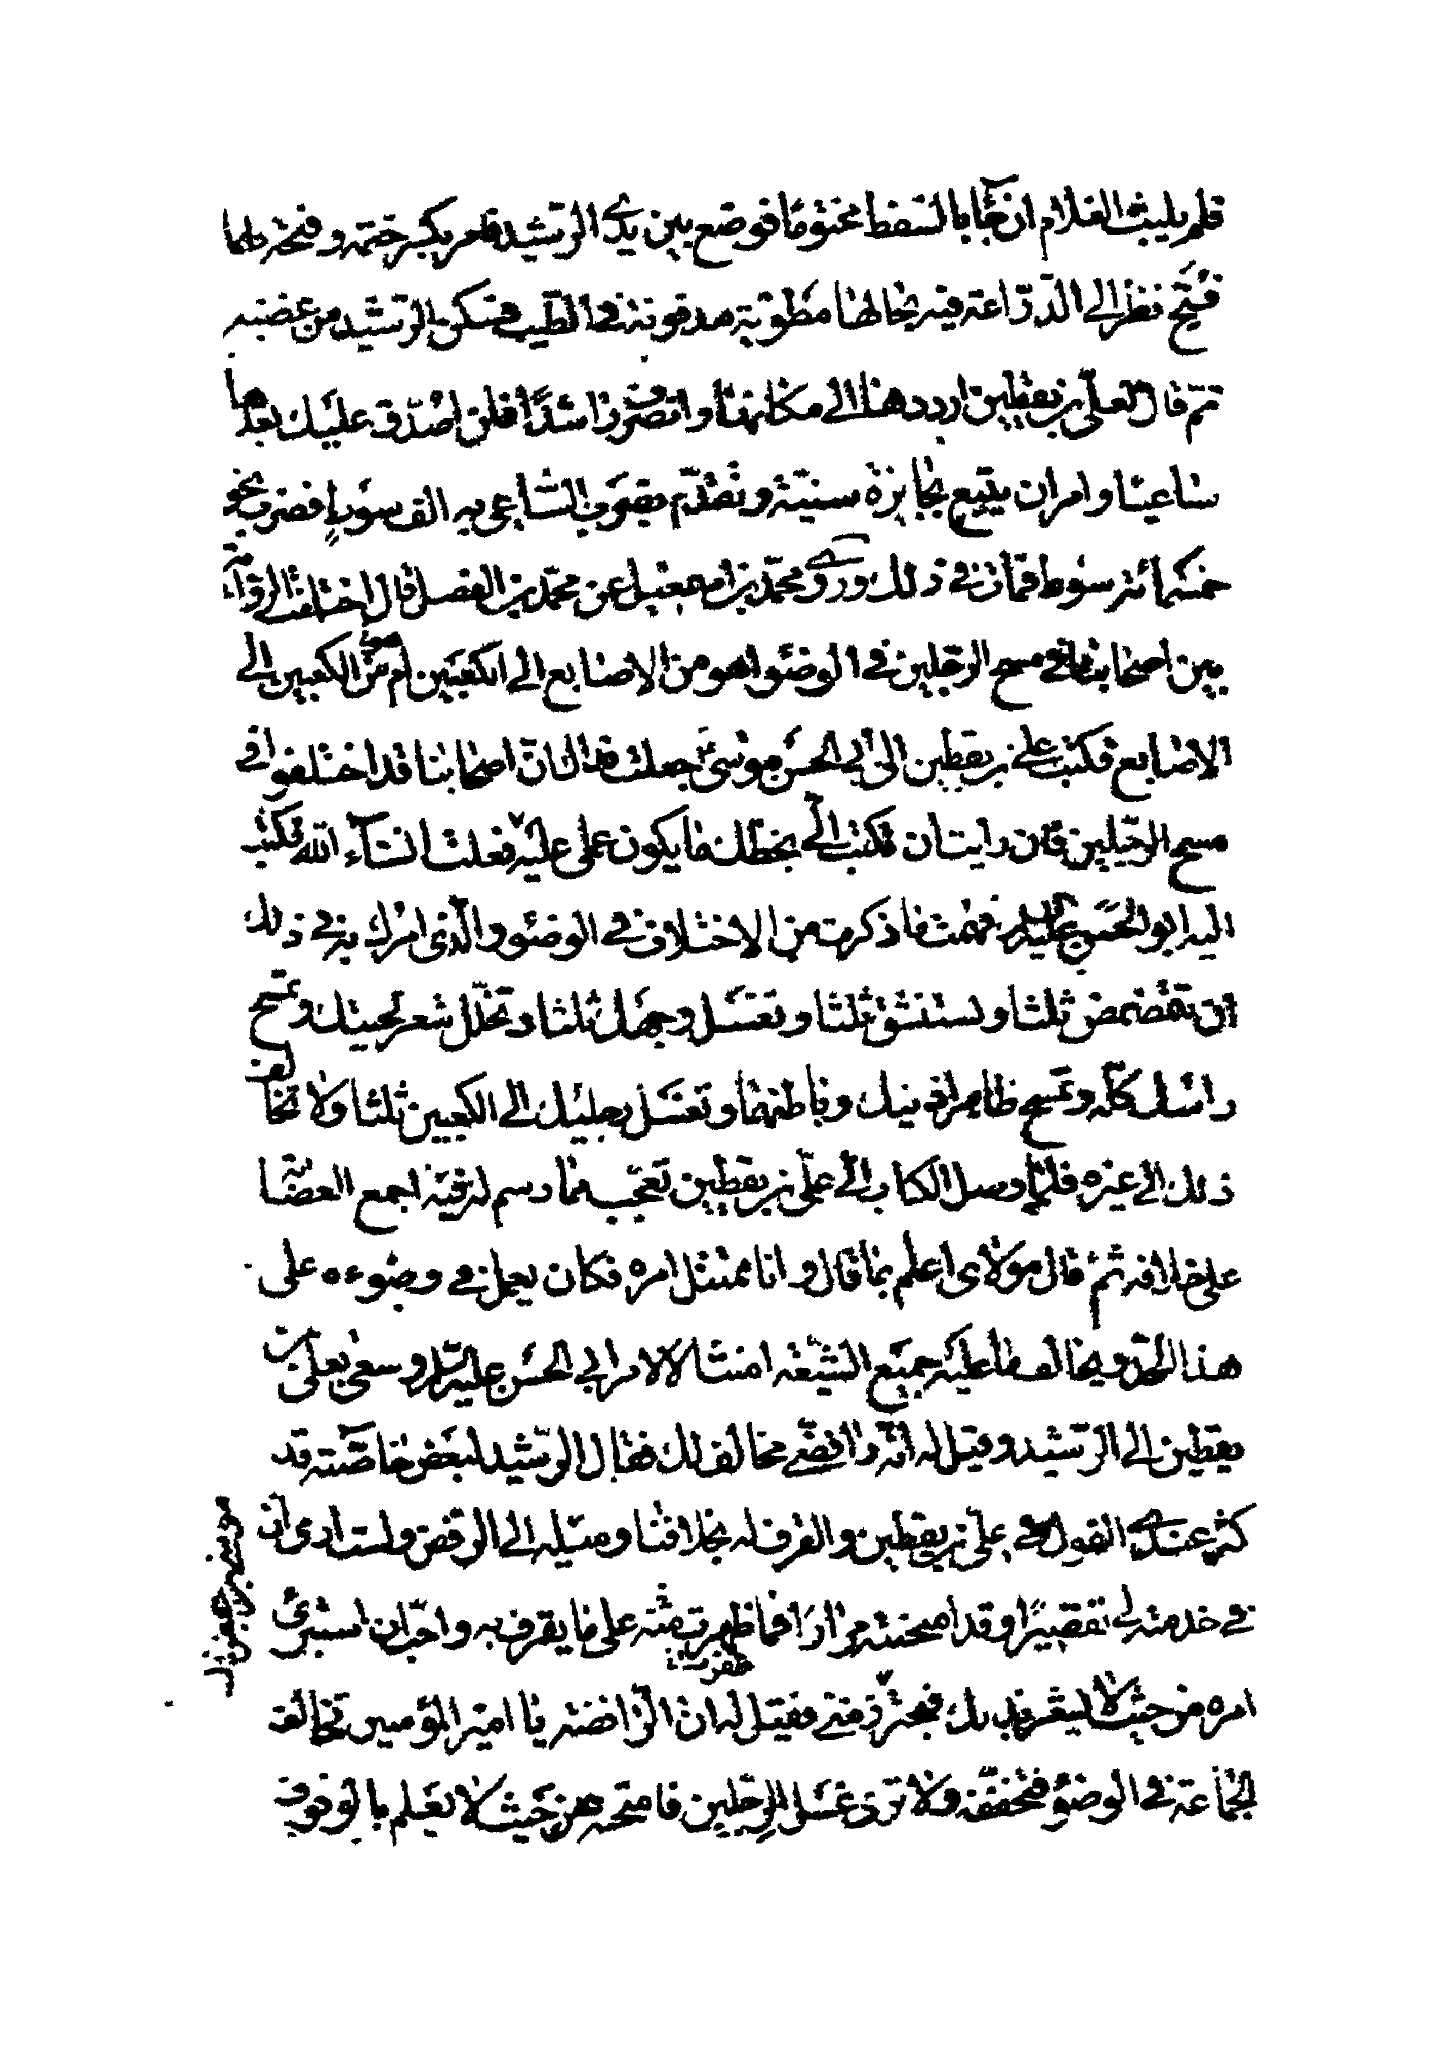 فلم يلبث الغلام ان جآء بالسفط مختوما فوضع بين يدي الرشيد فامر بكسر ختمه وفتحه فلما
فتح نظر الى الدرّاعة فيه بحالها مطوية مدفونة في الطيب فسكن الرشيد من غضبه
ثم قال لعلي بن يقطين اردد هذا الى مكانها وانصرف راشدًا فلن اصدق عليك بعدها
ساعيا وامر ان يتبع بجايزة سنية وتقدّم بضرب الساعي به الف سوط فضرب نحو
خمسمائة سوط فمات في ذلك وروي محمد بن اسمعيل عن محمد بن الفضل قال اختلفت الرواية
بين اصحابنا في مسح الرجلين في الوضوء اهو من الاصابع الى الكعبين ام هو من الكعبين الى
الاصابع فكتب علي بن يقطين الى ابي الحسن موسى ع جعلت فداك ان اصحابنا قد اختلفوا في
مسح الرجلين فان رايت ان تكتب الىّ بخطك ما يكون عملي عليه فعلت انشآء الله فكتب
اليه ابو الحسن عليه السلام فهمت ما ذكرت من الاختلاف في الوضوء والذي امرك به في ذلك
ان تتمضمض ثلثا وتستنشق ثلثا وتغسل وجهك ثلثا وتخلل شعر لحيتك وتمسح
راسك كله وتمسح ظاهر اذنيك وباطنهما وتغسل رجليك الى الكعبين ثلثا ولا تخالف
ذلك الى غيره فلما وصل الكتاب الى علي بن يقطين تعجب مما رسم له فيه اجمع العصابة
على خلافه ثم قال مولاي اعلم بما قال وانا ممتثل امره فكان يعمل في وضوءه على
هذا الحدّ ويخالف ما عليه جميع الشيعه امتثالا لامر ابي الحسن عليه السلام وسعى بعلي بن
يقطين الى الرشيد وقيل له انه رافضي مخالف لك فقال الرشيد لبعض خاصته قد
كثر عندي القول في علي بن يقطين والقرف له بخلافنا وميله الى الرفض ولست ارى
في خدمته لي تقصيرًا وقد امتحنته مرارًا فما ظهرت منه على ما يقرف به واحب ان استبرئ
امره من حيث لا يشعر بذلك فيتحرز مني فقيل له ان الرافضة يا امير المؤمنين تخالف
الجماعة في الوضوء فتخففه ولا ترى غسل الرجلين فامتحنه من حيث لا يعلم بالوقوف